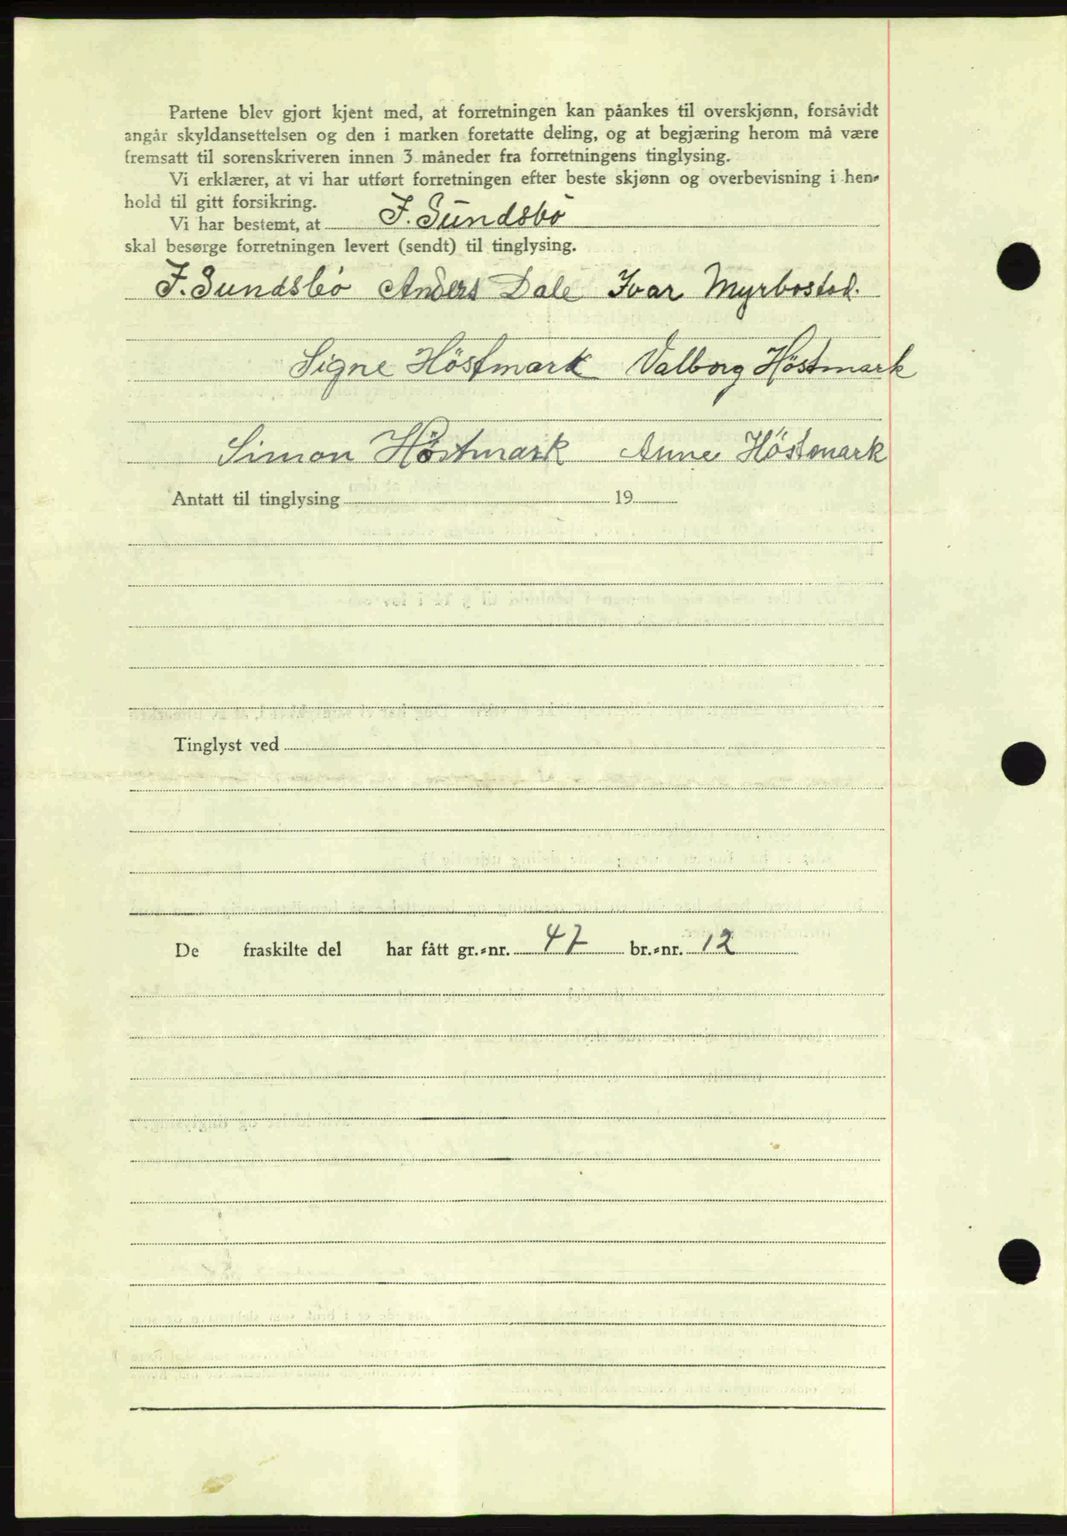 Partene blev gjort kjent med, at forretningen kan påankes til overskjønn, forsåvidt
angår skyldansettelsen og den i marken foretatte deling, og at begjæring herom må være
fremsatt til sorenskriveren innen 3 måneder fra forretningens tinglysing.
Vi erklærer, at vi har utført forretningen efter beste skjønn og overbevisning i hen-
hold til gitt forsikring.
Vi har bestemt, at J. Sundsbö
skal besørge forretningen levert (sendt) til tinglysing.
J. Sundsbö Anders Dale Ivar Myrbostad.
Signe Höstmark Valborg Höstmark
Simon Höstmark Anne Höstmark
Antatt til tinglysing 19
Tinglyst ved
De fraskilte del har fått gr.-nr. 47 br.-nr. 12